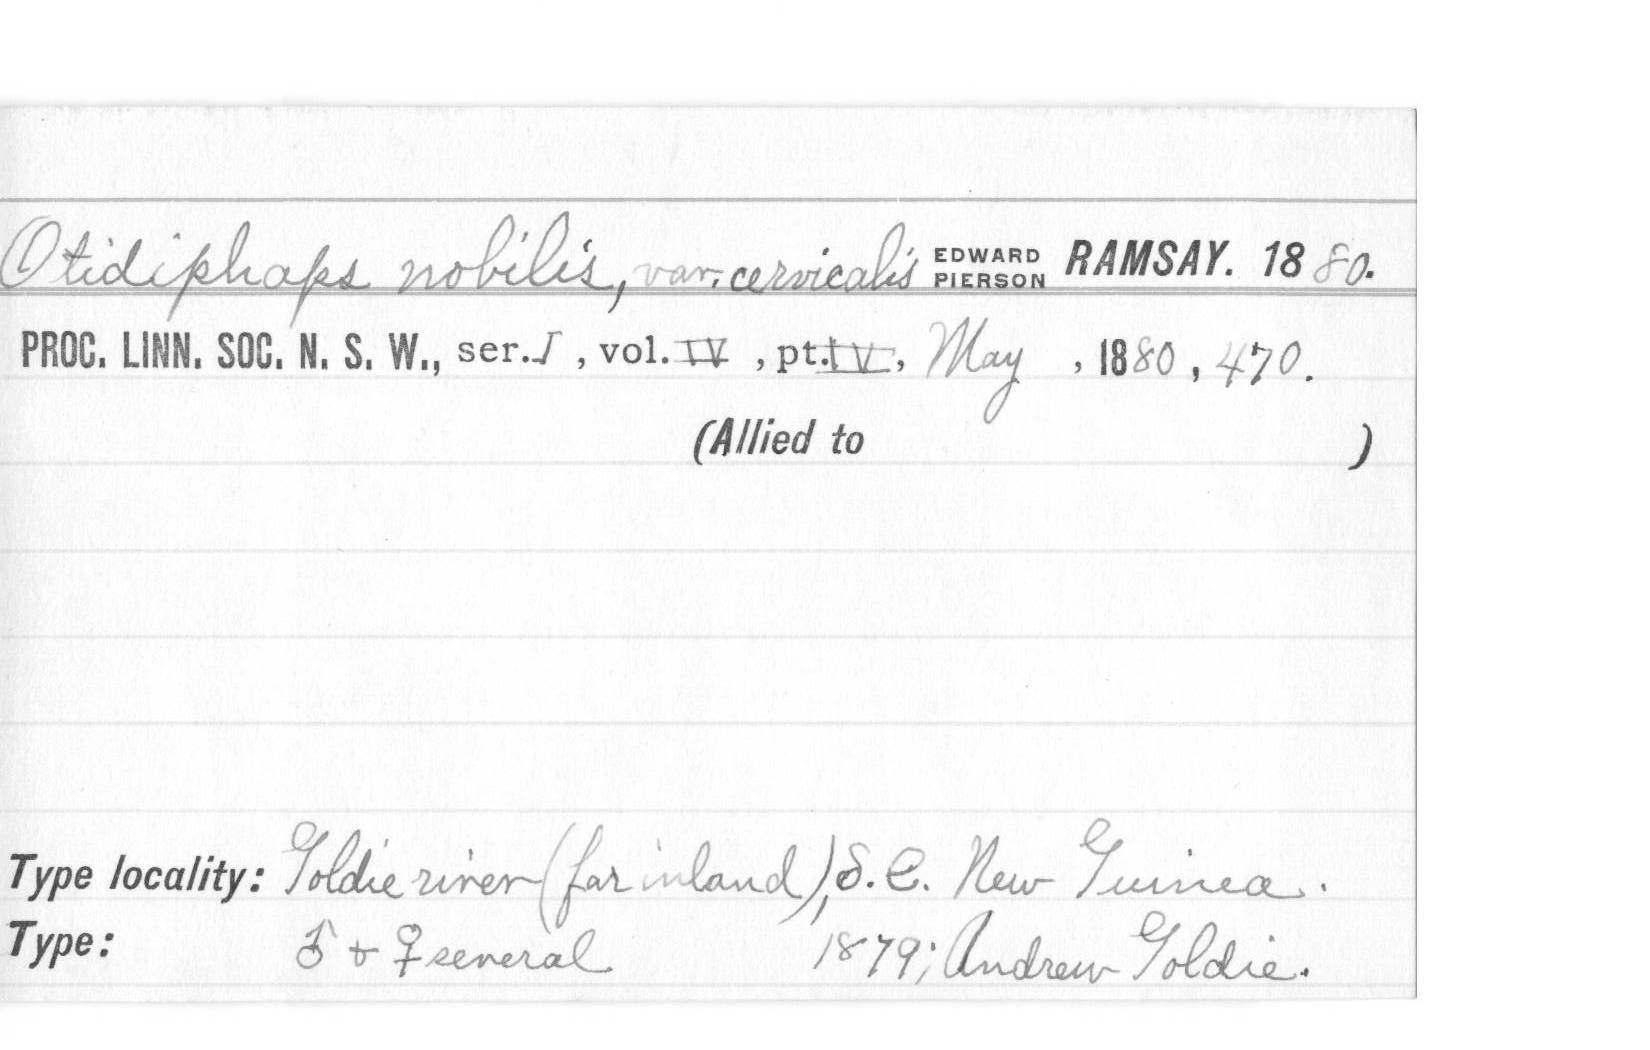 Otidiphaps nobilis, var. cervicalis EDWARD PIERSON RAMSAY. 1880.
PROC. LINN. SOC. N. S. W., ser. I, vol. IV, pt. IV, May, 1880, 470.
(Allied to )
Type locality: Goldie river (far inland), S. E. New Guinea.
Type: ♂ + ♀ several 1879; Andrew Goldie.